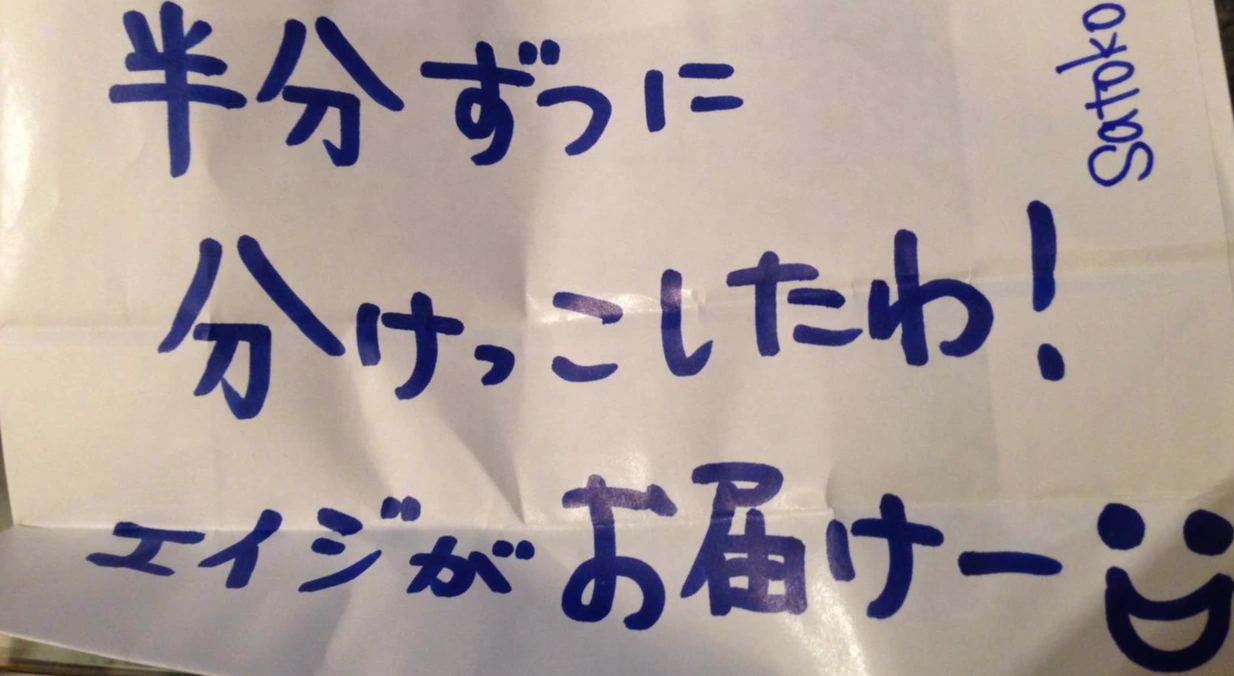 半分ずつに
分けっこしたわ!
エイジがお届けー
Satoko